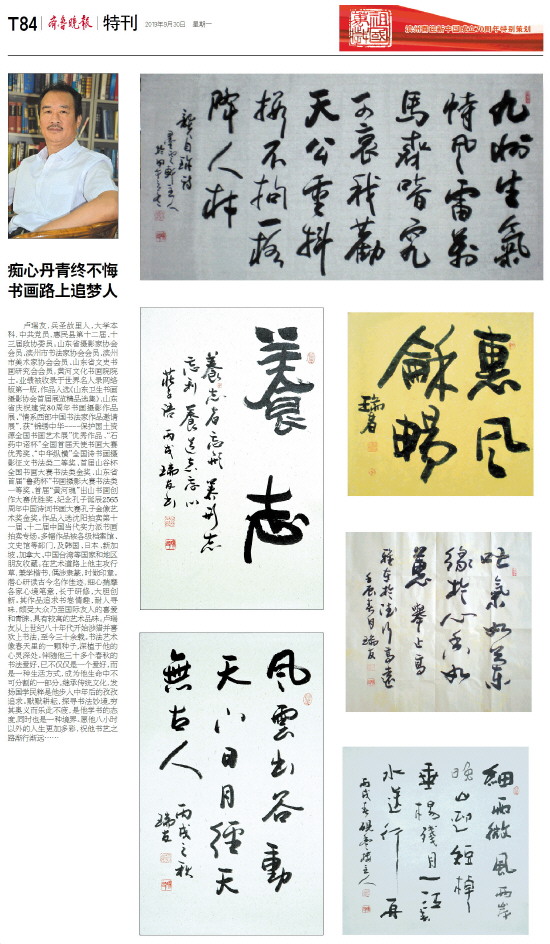 T84
齐鲁晚报
特刊
2019年9月30日 星期一
祖国
滨州喜迎新中国成立70周年特别策划
九州生氣
恃風雷萬
馬齊喑究
可哀我勸
天公重抖
擻不拘一格
降人材
龔自珍詩
痴心丹青终不悔
书画路上追梦人
卢瑞友,兵圣故里人,大学本
科,中共党员,惠民县第十二届、十
三届政协委员,山东省摄影家协会
会员,滨州市书法家协会会员,滨州
市美术家协会会员,山东省文史书
画研究会会员,黄河文化书画院院
士,业绩被收录于世界名人录网络
版第一版,作品入选《山东卫生书画
摄影协会首届展览精品选集》,山东
省庆祝建党80周年书画摄影作品
展,“情系西部中国书法家作品邀请
展”,获“锦绣中华——保护国土资
源全国书画艺术展”优秀作品,“石
药中诺杯”全国首届天使书画大赛
优秀奖,“中华纵横”全国诗书画摄
影征文书法类二等奖,首届山谷杯
全国书画大赛书法类金奖,山东省
首届“鲁药杯”书画摄影大赛书法类
一等奖,首届“黄河魂”田山书画创
作大赛优胜奖,纪念孔子诞辰2565
周年中国诗词书画大赛孔子金像艺
术奖金奖,作品入选沈阳拍卖第十
一届、十二届中国当代实力派书画
拍卖专场,多幅作品被各级档案馆、
文史馆等部门,及韩国、日本、新加
坡、加拿大、中国台湾等国家和地区
朋友收藏,在艺术道路上他主攻行
草,兼学楷书,偶涉隶篆,时做印章,
潜心研读古今名作佳迹,细心揣摩
各家心境笔意,长于研修,大胆创
新,其作品追求书卷情趣,耐人寻
味,颇受大众乃至国际友人的喜爱
和青睐,具有较高的艺术品味。卢瑞
友从上世纪八十年代开始涉猎并喜
欢上书法,至今三十余载,书法艺术
像春天里的一颗种子,深植于他的
心灵深处,伴随他三十多个春秋的
书法爱好,已不仅仅是一个爱好,而
是一种生活方式,成为他生命中不
可分割的一部分,继承传统文化,发
扬国学民粹是他步入中年后的孜孜
追求,默默耕耘,探寻书法妙境,穷
其奥义而乐此不疲,是他学书的态
度,同时也是一种境界,愿他八小时
以外的人生更加多彩,祝他书艺之
路渐行渐远……
養志
養志者忘形養形者
忘利養道者忘心
丙戌瑞友書
惠風
龢暢
瑞友
吐氣如蘭
瑞友
風雲出谷動
天门日月經天
無古人
丙戌之秋
瑞友
細雨微風兩岸
晚山迎短棹
垂楊殘月一江
水送行舟